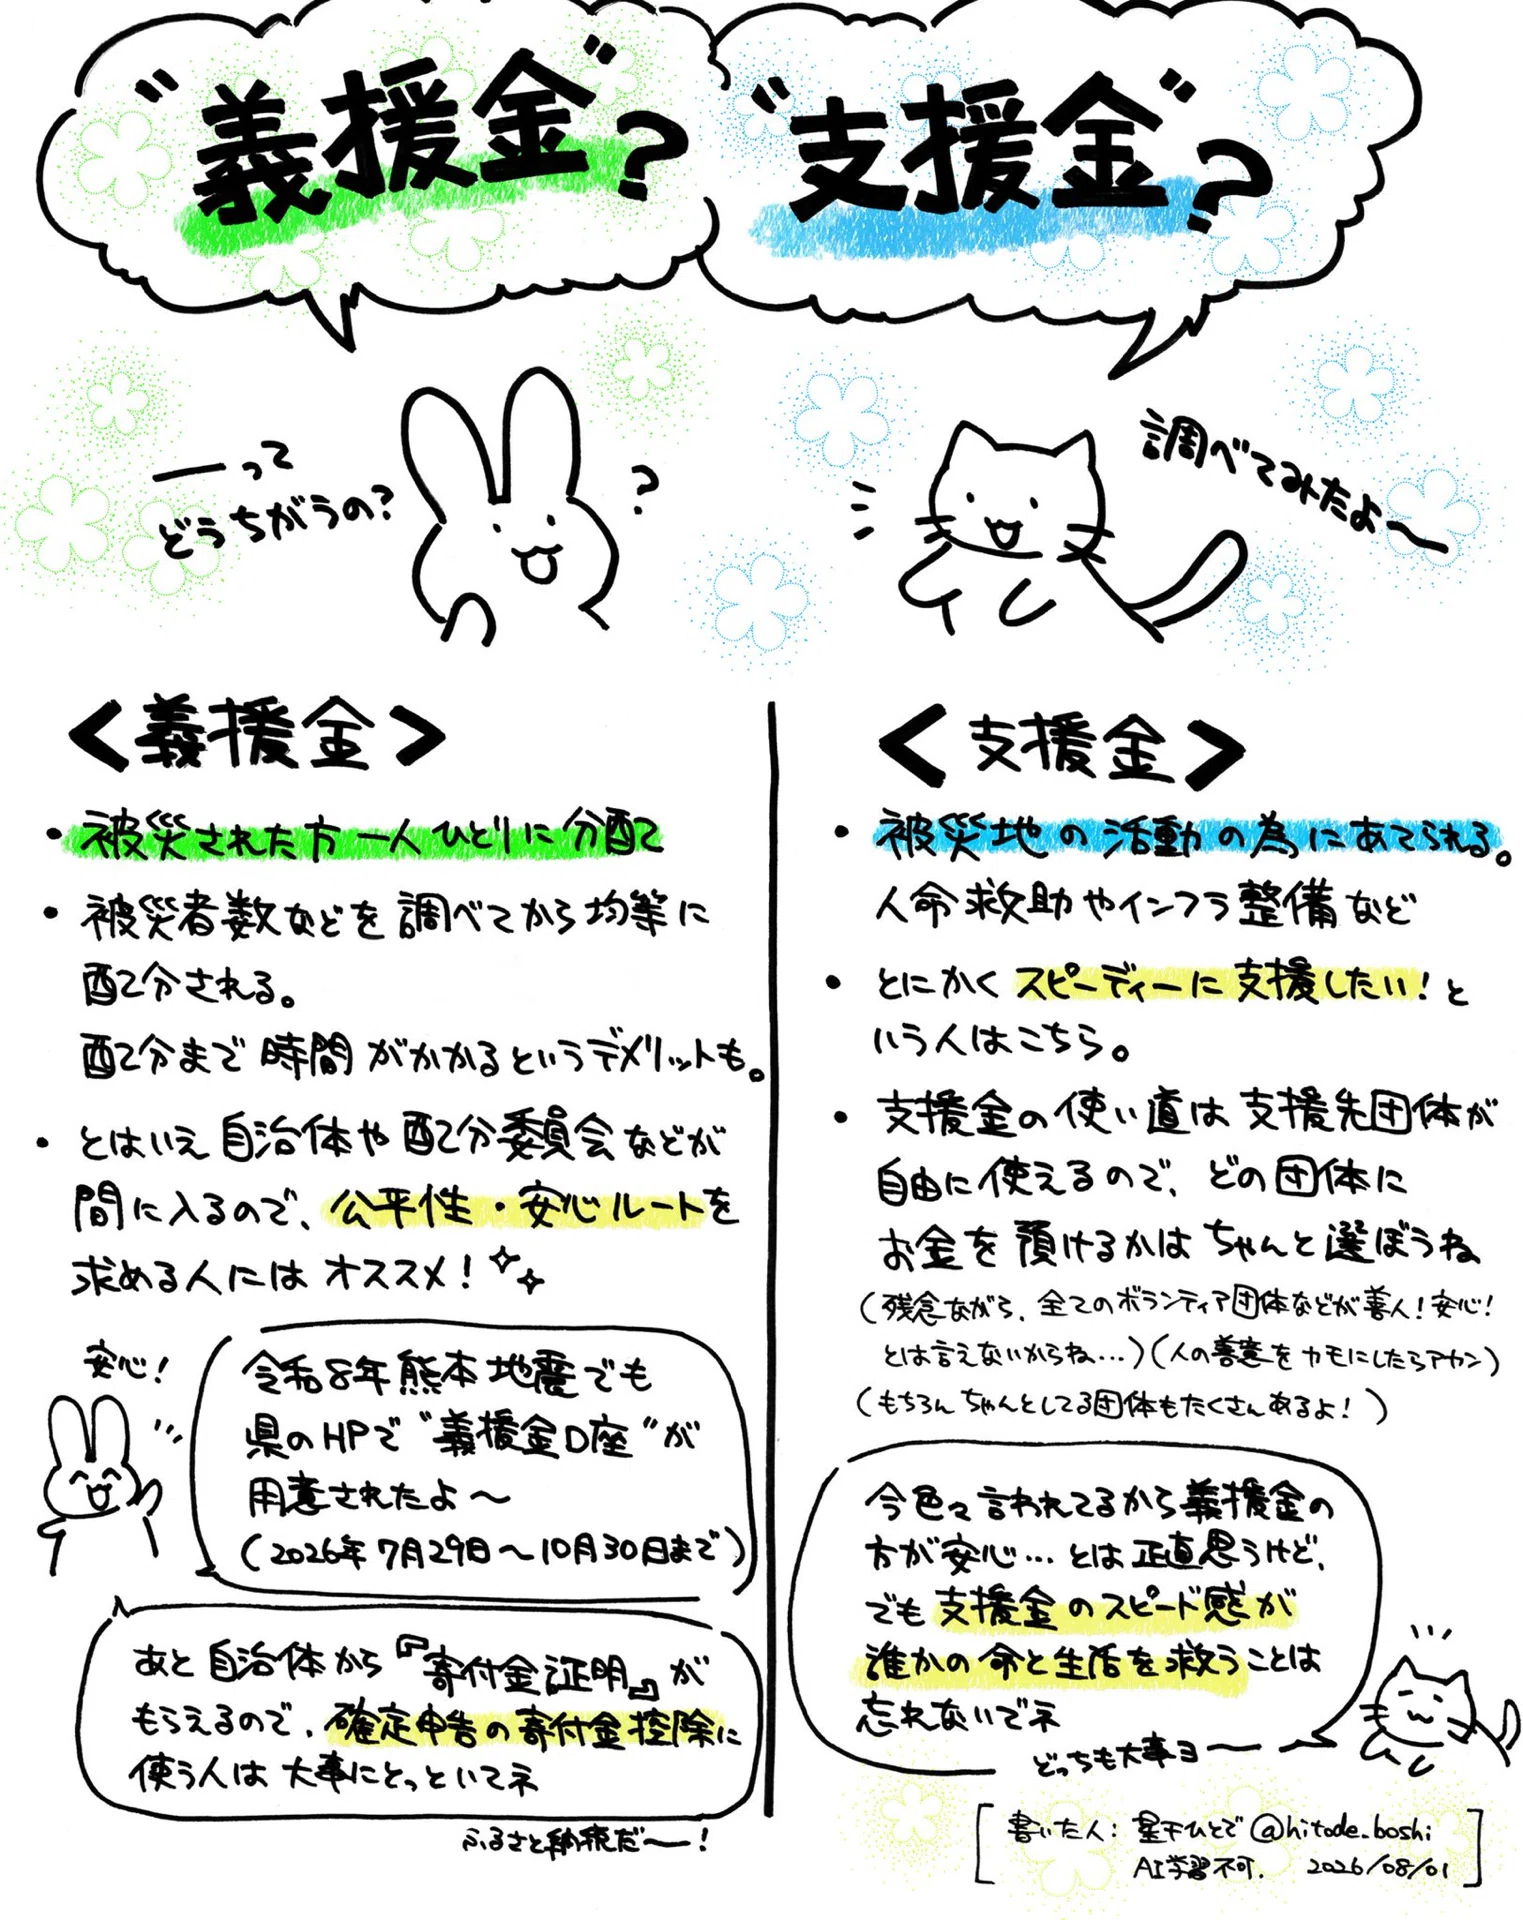 "義援金"?
"支援金"?
──って
どうちがうの?
?
調べてみたよ〜
<義援金>
・被災された方一人ひとりに分配て
・被災者数などを調べてから均等に
配分される。
配分まで時間がかかるというデメリットも。
・とはいえ自治体や配分委員会などが
間に入るので、公平性・安心ルートを
求める人にはオススメ!
安心!
令和8年熊本地震でも
県のHPで"義援金口座"が
用意されたよ〜
(2026年7月29日〜10月30日まで)
あと自治体から『寄付金証明』が
もらえるので、確定申告の寄付金控除に
使う人は大事にとっといてネ
ふるさと納税だ〜!
<支援金>
・被災地の活動の為にあてられる。
人命救助やインフラ整備など
・とにかくスピーディーに支援したい!と
いう人はこちら。
・支援金の使い道は支援先団体が
自由に使えるので、どの団体に
お金を預けるかはちゃんと選ぼうね
(残念ながら、全てのボランティア団体などが善人!安心!
とは言えないからね…)(人の善意をカモにしたらアカン)
(もちろんちゃんとしてる団体もたくさんあるよ!)
今色々言われてるから義援金の
方が安心…とは正直思うけど、
でも支援金のスピード感が
誰かの命と生活を救うことは
忘れないでネ
どっちも大事ヨ──
[書いた人: 星下ひとで @hitode_boshi
AI学習不可. 2026/08/01]